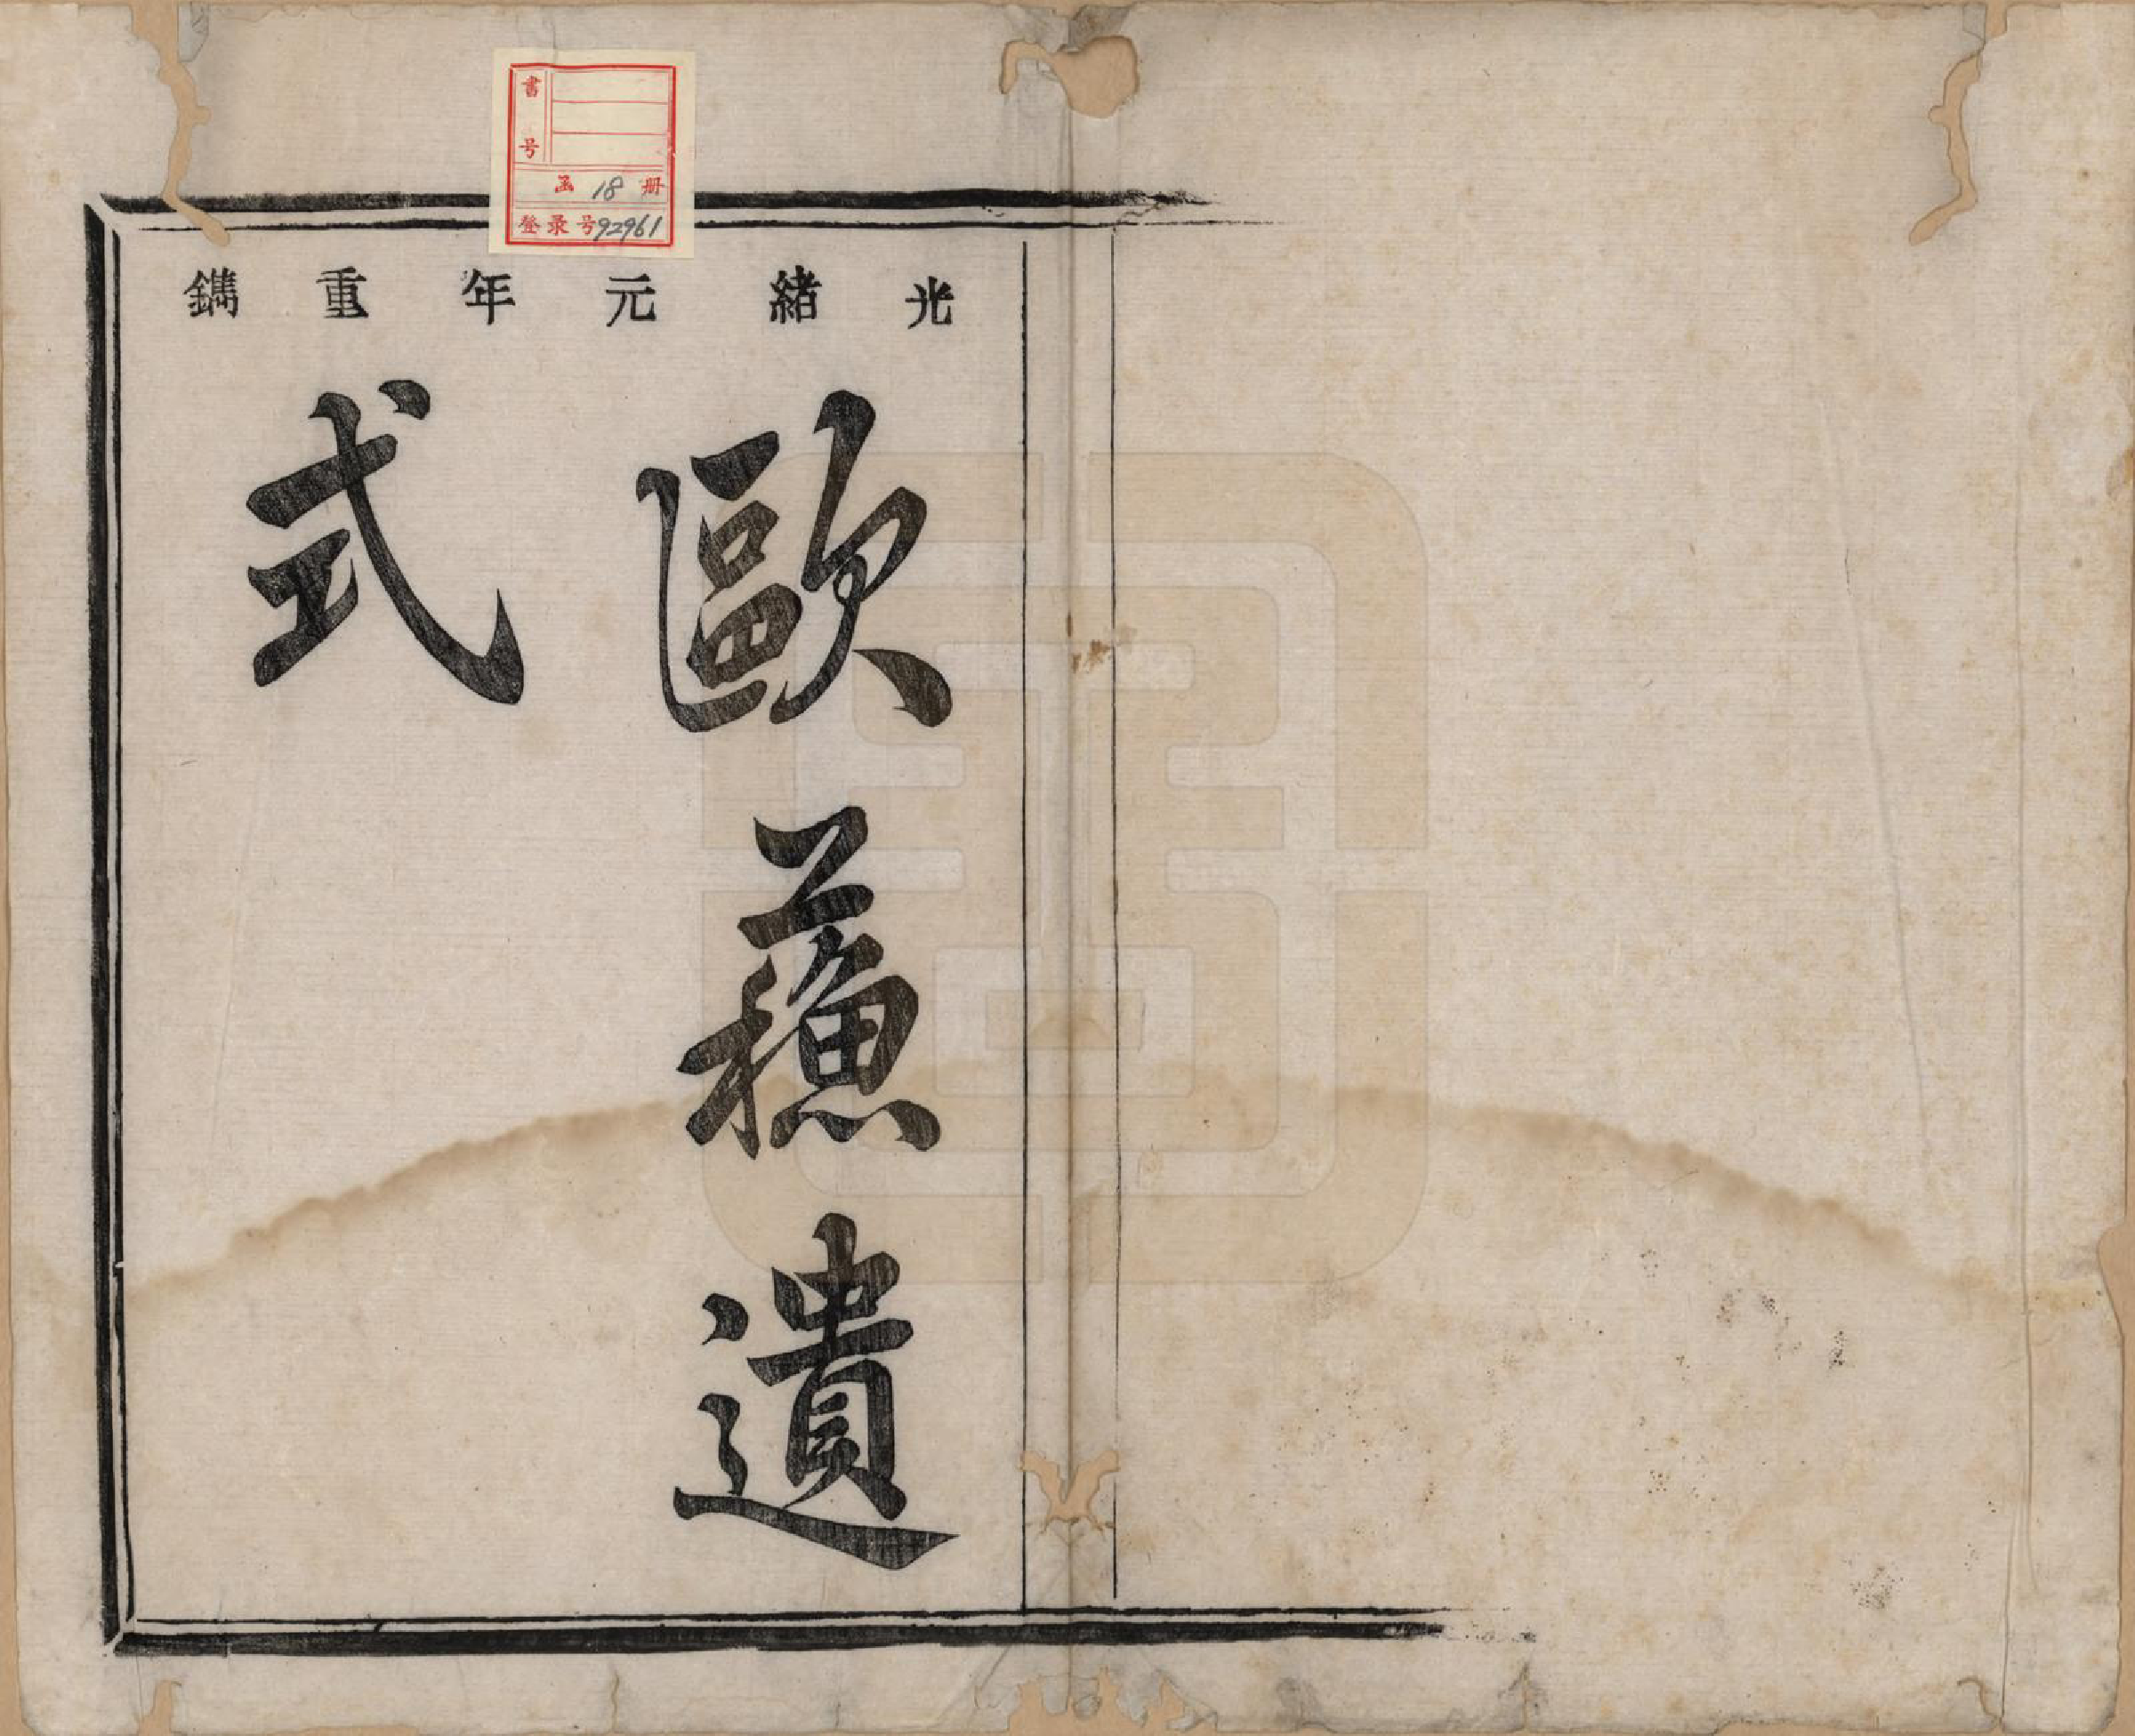 光緒元年重鐫
歐蘓遺
式
書号
函 18 册
登录号 92961